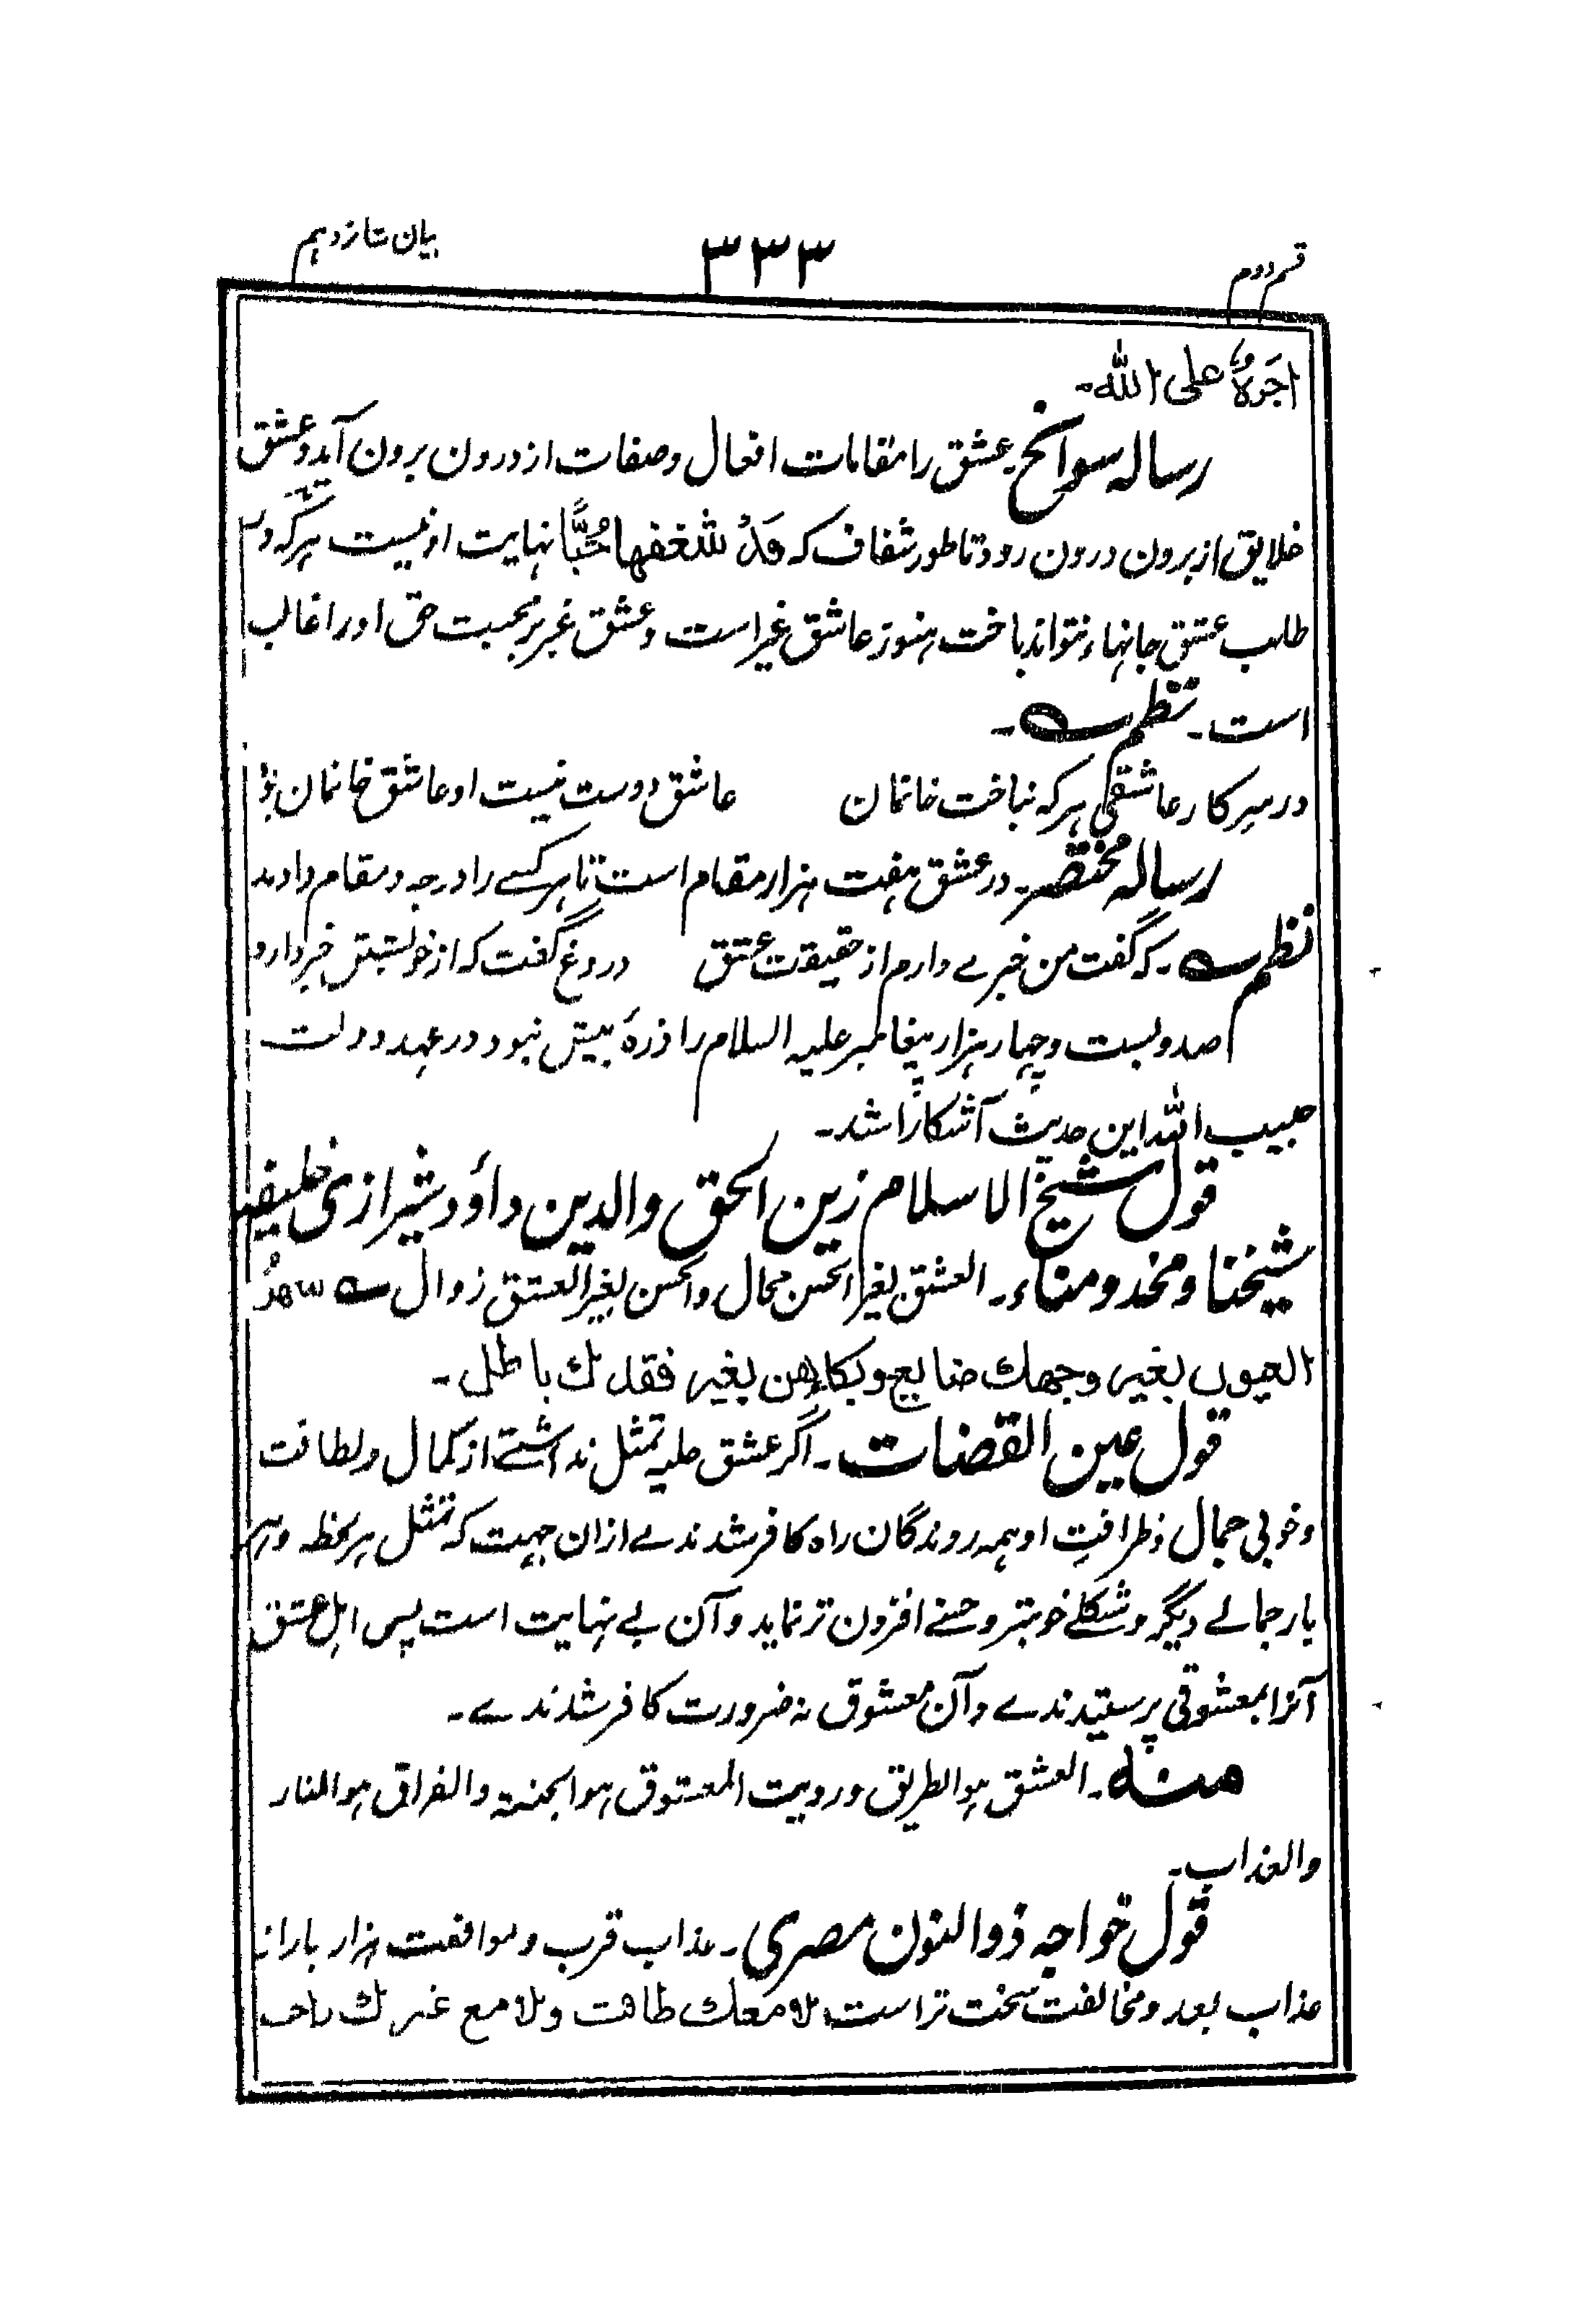 قسم دوم ۳۳۳ بیان شانزدہم
اجرہٗ علی اللہ۔
رسالہ سوانح۔ عشق را مقامات افعال وصفات از درون برون آید وعشق
خلایق از برون درون رود تا طور شفاف کہ قَدْ شَغَفَهَا حُبًّا نہایت او نیست ہر کہ در
طلب عشق جانہاء نتواند باخت ہنوز عاشق غیر است وعشق غیر بر محبت حق او را غالب
است۔ نظم ۔
در سرکار عاشقی ہر کہ نباخت خانمان عاشق دوست نیست او عاشق خانمان بود
رسالہ مختصر۔ در عشق ہفت ہزار مقام است تا ہر کسے را درجہ و مقام دادند
نظم ۔ کہ گفت من خبرے دارم از حقیقت عشق دروغ گفت کہ از خویشتن خبر دارد
صد و بست و چہار ہزار پیغامبر علیہ السلام را ذرۂ بیش نبود در عہد دولت
حبیب اللہ این حدیث آشکارا شد۔
قول شیخ الاسلام زین الحق والدین داؤد شیرازی خلیفہ
شیخنا و مخدومناء۔ العشق بغیر الحسن محال والحسن بغیر العشق زوال سهر
العیون بغیر وجهك ضایع وبکاءهن بغیر فقدك باطل۔
قول عین القضات۔ اگر عشق حلیہ تمثل نداشتے از کمال ولطافت
وخوبی جمال وظرافت او ہمہ روندگان راہ کافر شدندے ازان جہت کہ تمثل ہر لحظہ وہر
بار جمالے دیگر وشکلے خوبتر وحسنے افزون تر نماید و آن بے نہایت است پس اہل عشق
آنرا بمعشوقی پرستیدندے و آن معشوق نہ ضرورت کافر شدندے۔
منہ۔ العشق ہو الطریق و رویت المعشوق ہو الجنتہ والفراق ہو النار
والعذاب۔
قول خواجہ ذوالنون مصری۔ عذاب قرب وموافقت ہزار بار از
عذاب بعد و مخالفت سخت تر است لا معك طاقت ولا مع غیرك راحت